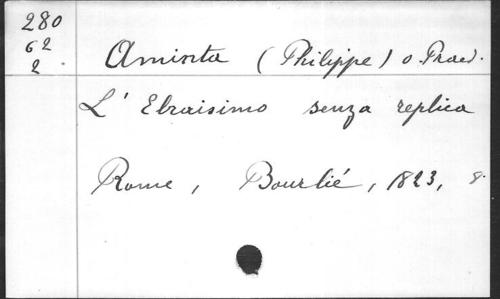 280
62
2.
Aminta (Philippe) o. Praed.
L' Ebraisimo senza replica
Rome, Bourlié, 1823, 8.